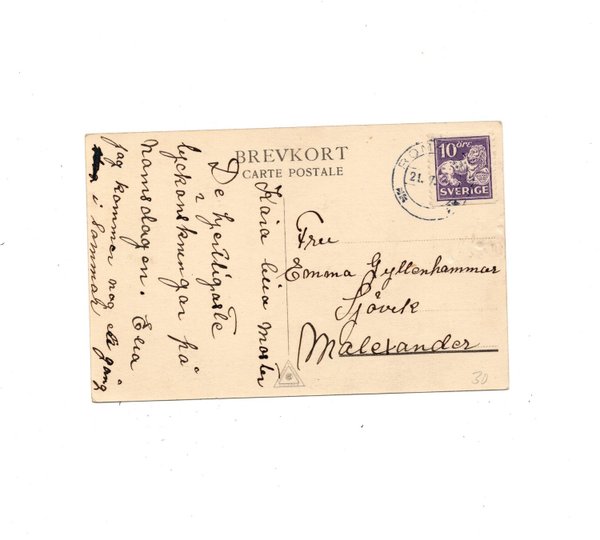 BREVKORT
CARTE POSTALE
10 öre
SVERIGE
21. 7
Kära lilla moster
De hjertligaste
lyckönskningar på
namsdagen. Elsa
jag kommer nog en gång
i sommar
Fru
Emma Gyllenhammar
Sjövik
Malexander
30